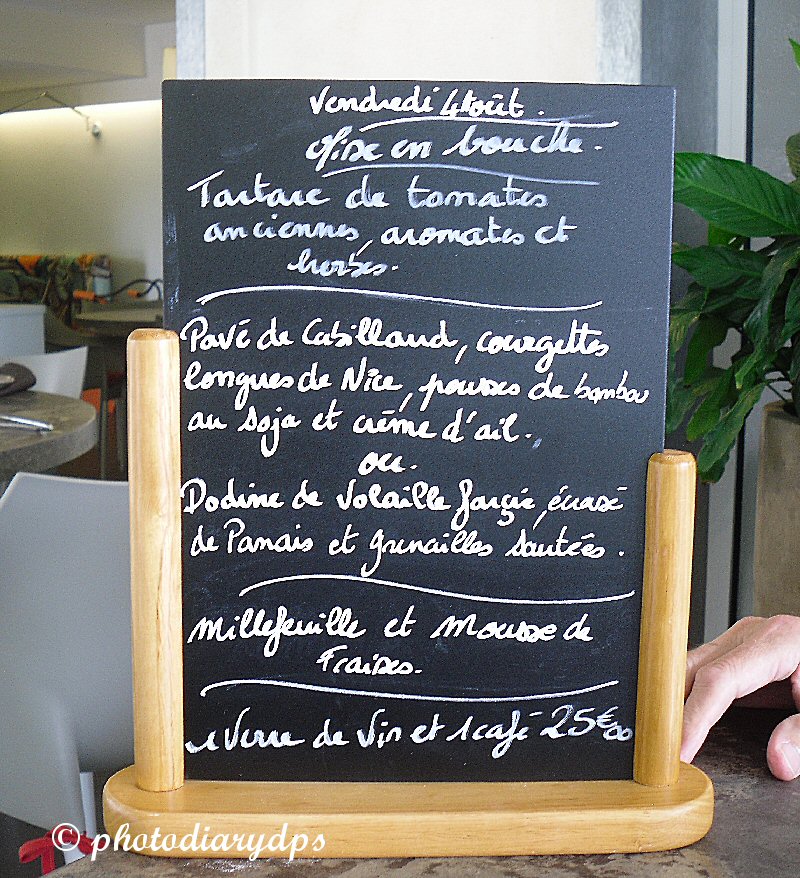 Vendredi 4 Août.
Mise en bouche.
Tartare de tomates
anciennes, aromates et
herbes.
Pavé de Cabillaud, courgettes
longues de Nice, pousses de bambou
au soja et crème d'ail.
ou.
Dodine de Volaille farçie, écrasé
de Panais et grenailles sautées.
Millefeuille et Mousse de
Fraises.
1 Verre de Vin et 1 café 25€00
© photodiarydps